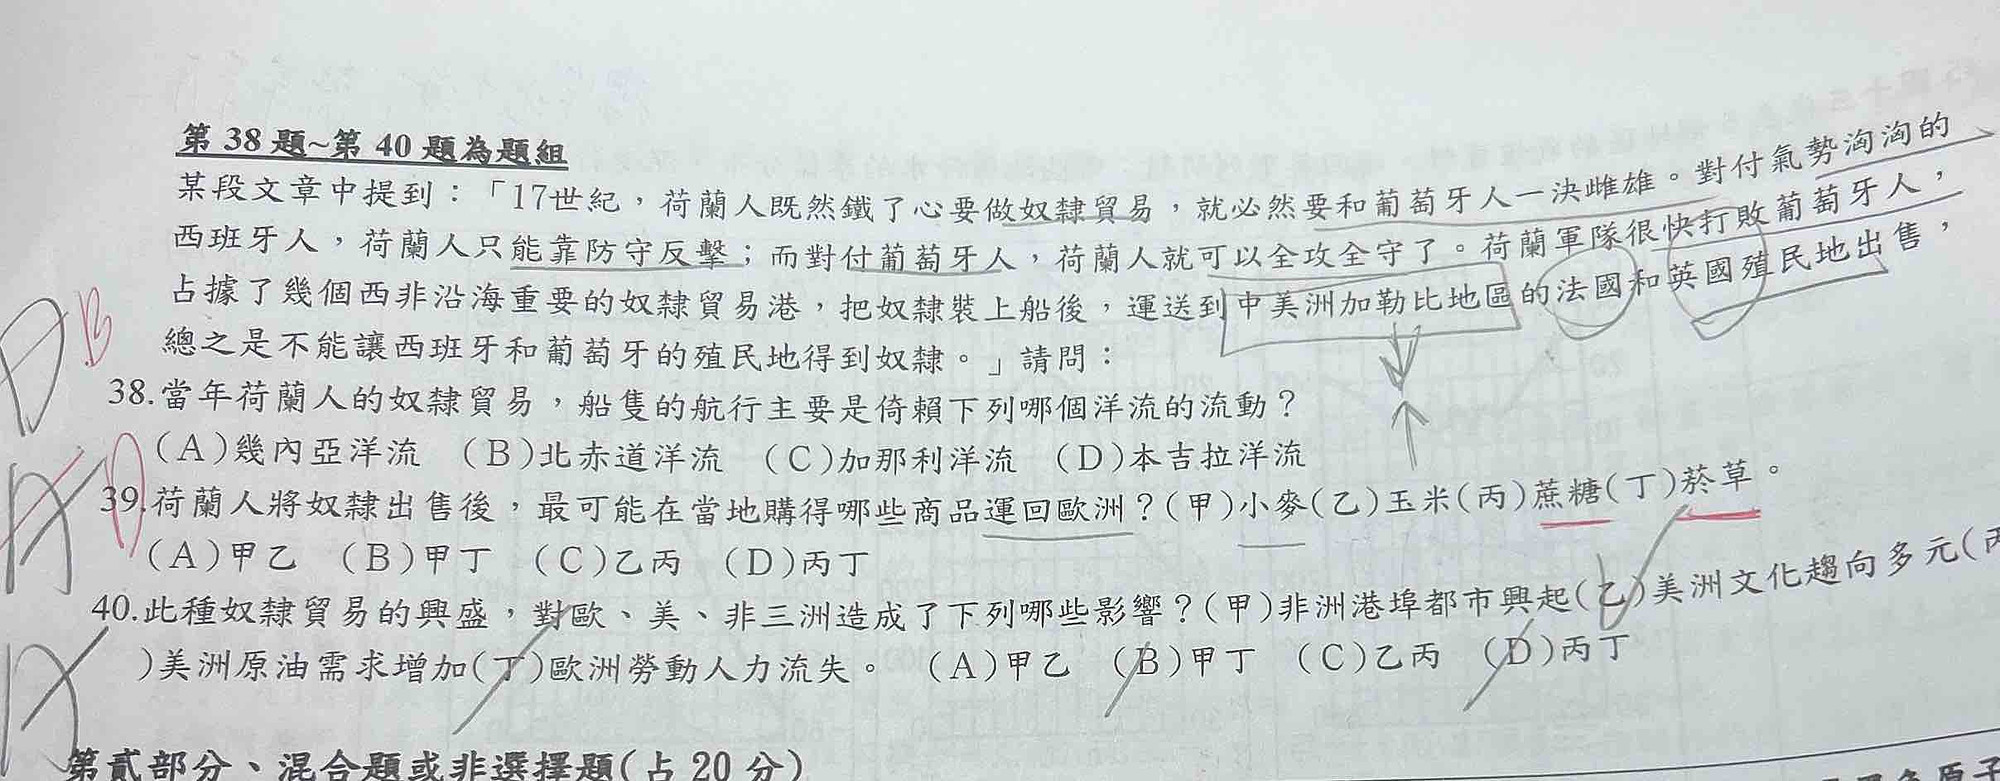 第 38 題~第 40 題為題組
某段文章中提到：「17世紀，荷蘭人既然鐵了心要做奴隸貿易，就必然要和葡萄牙人一決雌雄。對付氣勢洶洶的
西班牙人，荷蘭人只能靠防守反擊；而對付葡萄牙人，荷蘭人就可以全攻全守了。荷蘭軍隊很快打敗葡萄牙人，
占據了幾個西非沿海重要的奴隸貿易港，把奴隸裝上船後，運送到中美洲加勒比地區的法國和英國殖民地出售，
總之是不能讓西班牙和葡萄牙的殖民地得到奴隸。」請問：
B
38.當年荷蘭人的奴隸貿易，船隻的航行主要是倚賴下列哪個洋流的流動？
(A)幾內亞洋流 (B)北赤道洋流 (C)加那利洋流 (D)本吉拉洋流
39.荷蘭人將奴隸出售後，最可能在當地購得哪些商品運回歐洲？(甲)小麥(乙)玉米(丙)蔗糖(丁)菸草。
(A)甲乙 (B)甲丁 (C)乙丙 (D)丙丁
40.此種奴隸貿易的興盛，對歐、美、非三洲造成了下列哪些影響？(甲)非洲港埠都市興起(乙)美洲文化趨向多元(丙
)美洲原油需求增加(丁)歐洲勞動人力流失。 (A)甲乙 (B)甲丁 (C)乙丙 (D)丙丁
第貳部分、混合題或非選擇題(占 20 分)